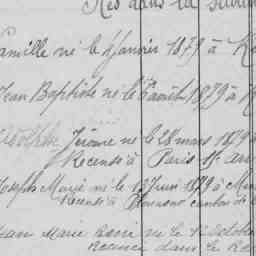 Nés dans la
Camille né le 4 Janvier 1879 à
Jean Baptiste né le 8 août 1879 à
Adolphe Jérome né le 28 mars 1879 à
Recensé à Paris 1er arr
Joseph Marie né le 12 Juin 1879 à
Recensé à canton de
Jean Marie né le 12 Octobre
Recensé dans le